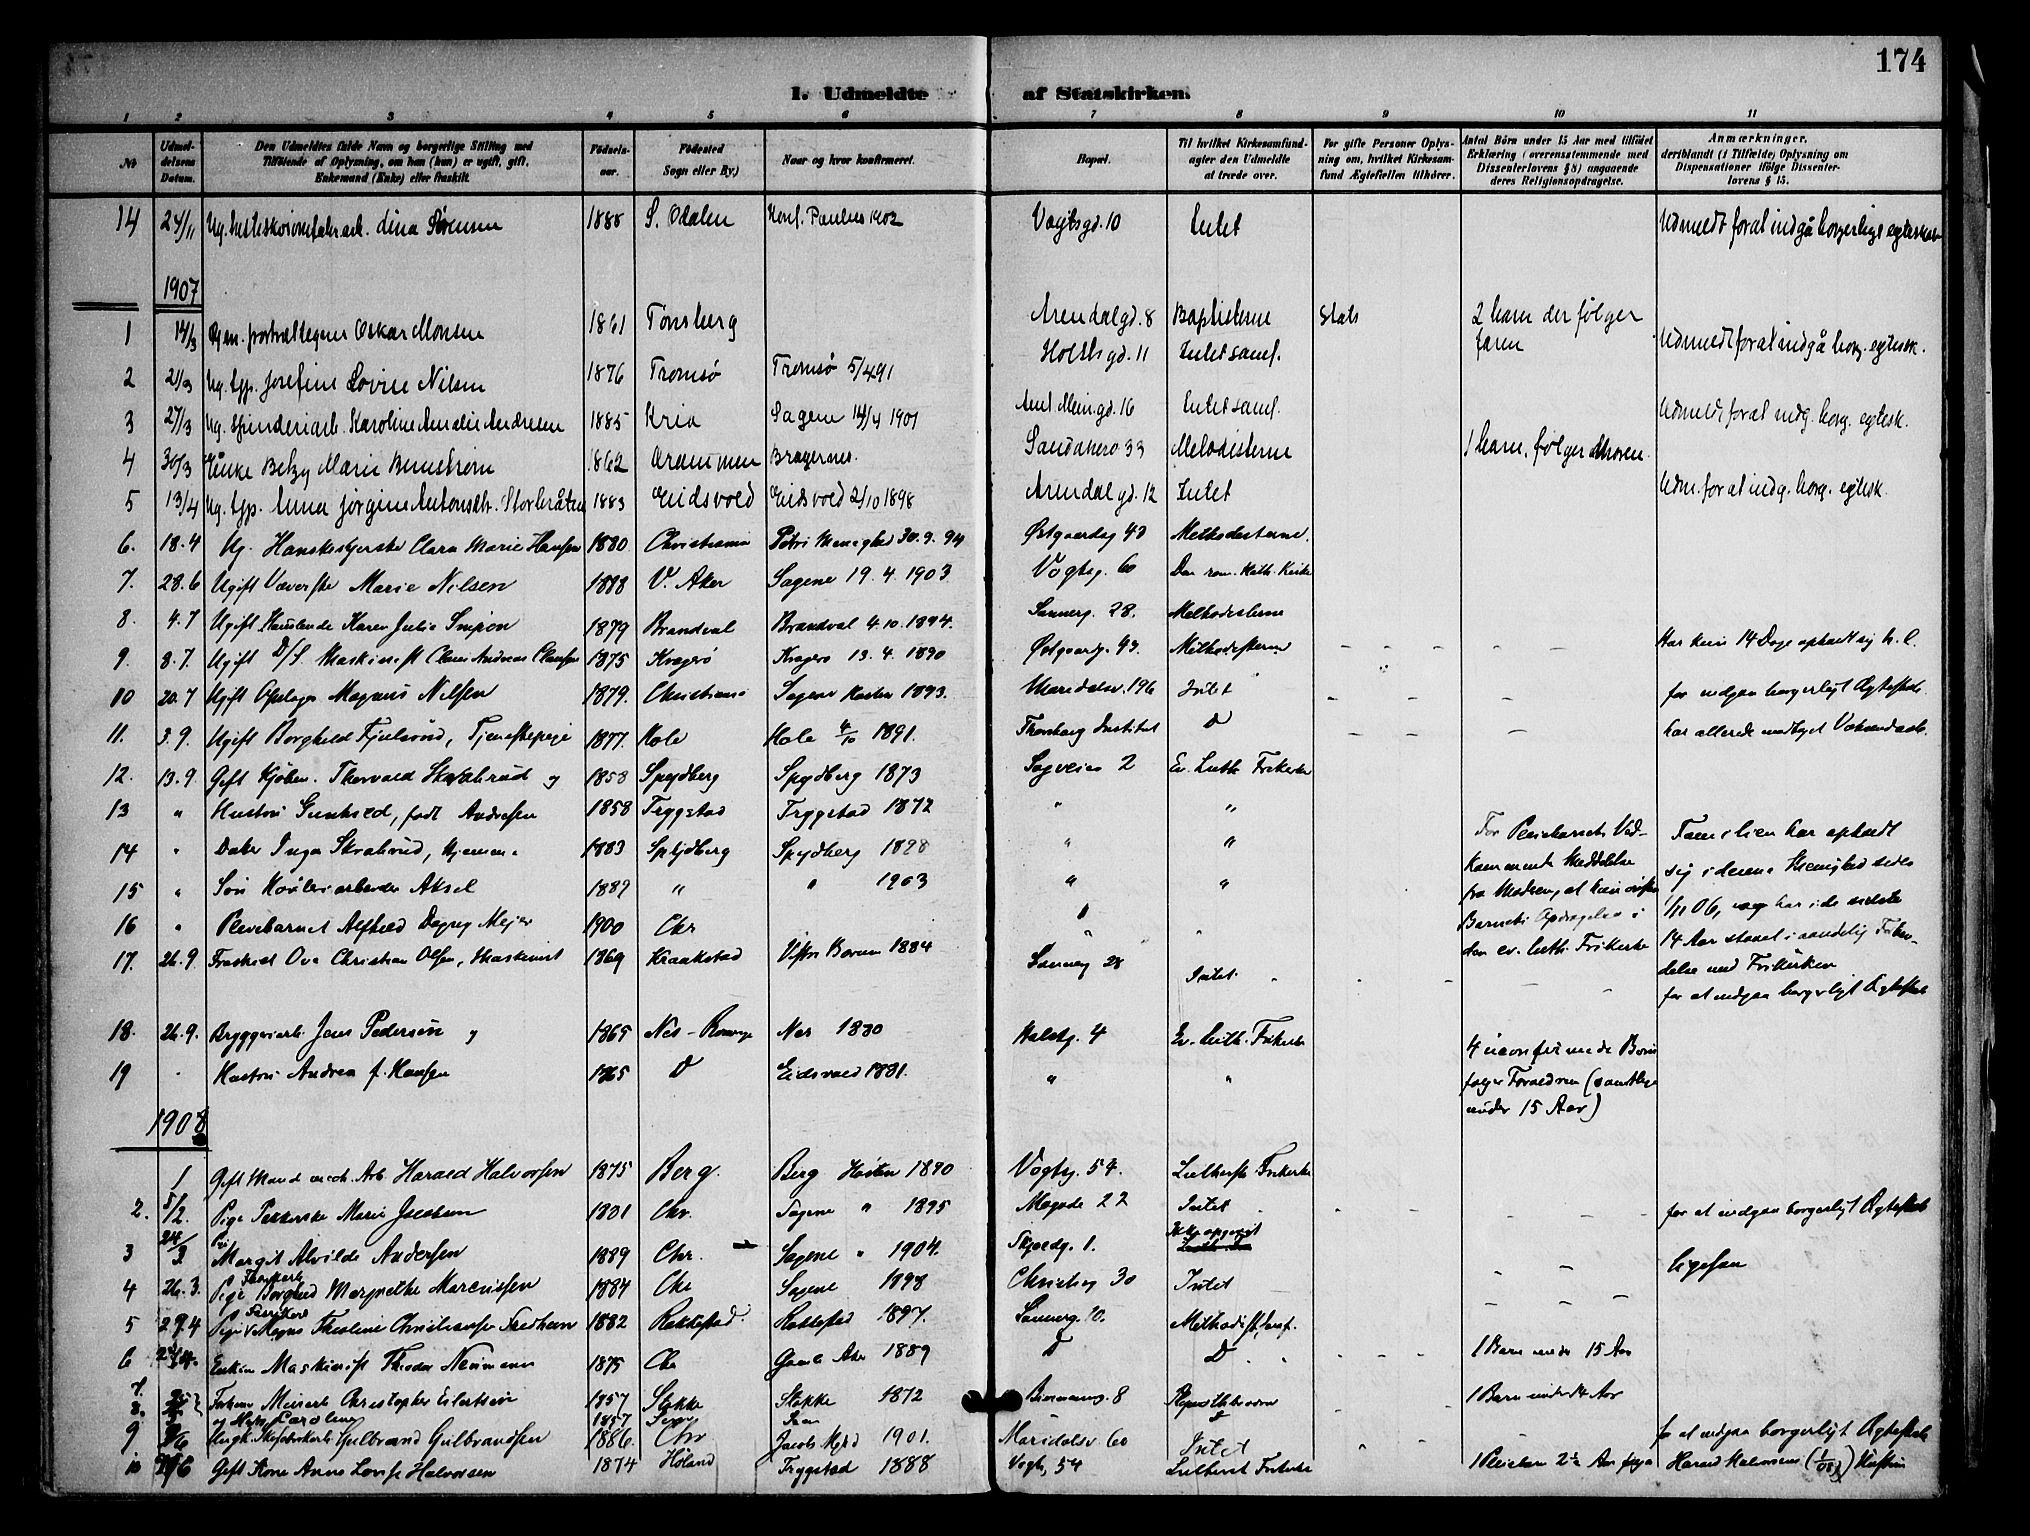 174
I. Udmeldte af Statskirken.
1 2 3 4 5 6 7 8 9 10 11
Nr. Udmeldelsens Datum. Den Udmeldtes fulde Navn og borgerlige Stilling med Tilføiende af Oplysning, om han (hun) er ugift, gift, Enkemand (Enke) eller fraskilt. Fødselsaar. Fødested Sogn eller By.) Naar og hvor konfirmeret. Bopæl. Til hvilket Kirkesamfund agter den Udmeldte at træde over. For gifte Personer Oplysning om, hvilket Kirkesamfund Ægtefællen tilhører. Antal Börn under 15 Aar med tilföiet Erklæring (overensstemmende med Dissenterlovens § 8) angaaende deres Religionsopdragelse. Anmærkninger, deriblandt (i Tilfælde) Oplysning om Dispensationer ifölge Dissenterlovens § 15.
14 24/11 Ug. hesteskosømfabr.arb. Lina Sørensen 1888 S. Odalen Konf. Paulus 1902 Vogtsgd. 10 Intet Udmeldt for at indgå borgerligt egteskab
1907
1 14/3 Oskar Monsen 1861 Tønsberg Arendalgd. 8 Baptisterne Stats 2 barn der følger faren
2 21/3 Ug. tjp. Josefine Lovise Nilsen 1876 Tromsø Tromsø 5/4 91 Holstsgd. 11 Intet samf. Udmeldt for at indgå borg. egtesk.
3 27/3 Ug. spinderiarb. Karoline Amalie Andresen 1885 Kria Sagene 14/4 1901 16 Intet samf. Udmeldt for at indg. borg. egtesk.
4 30/3 Enke Betzy Marie 1862 Drammen Bragernes Sandakerv 33 Metodisterne 1 barn, følger moren
5 13/4 Ug. tjp. Anna Jørgine Antonsdtr. Storbråten 1883 Eidsvold Eidsvold 2/10 1898 Arendalgd. 12 Intet Udm. for at indg. borg. egtesk.
6. 18.4 Ug. Hanskesyerske Clara Marie Hansen 1880 Christiania Petri Menighed 30.9.94 Østgaardsg 43 Methodisterne.
7. 28.6 Ugift Væverske Marie Nilsen 1888 V. Aker Sagene 19.4.1903 Vogtsg. 60 Den rom. Kath. Kirke
8. 4.7 Ugift Karen Julie 1879 Brandval Brandval 4.10.1894. Sannerg. 28. Methodisterne
9. 8.7. Ugift D/S Maskinist Claus Andreas Clausen 1875 Kragerø Kragerø 13.4.1890 Østgaardg. 43. Methodisterne Har kun 14 Dage opholdt sig h. l.
10 20.7 Ugift Opslager Magnus Nilsen 1879. Christiania Sagene Høsten 1893. Maridalsv. 196 Intet for indgaa borgerligt Ægteskab
11. 3.9. Ugift Borghild Fjeldsrud, Tjenestepige 1877. Hole Hole 4/10 1891. Thorshaug Institut D har allerede modtaget
12. 13.9. Gift Kjøbm. Thorvald Skralsrud og 1858 Spydberg Spydberg 1873 Sagveien 2 Ev. Luth. Frikirke
13 " Hustru Gunhild, født Andresen 1858 Trygstad Trygstad 1872 " "
14 " Datter Inga Skralsrud, hjemmev. 1883 Spydberg Spydberg 1898 " " For Pleiebarnets Vedkommende Meddelelse fra Moderen, at hun ønsker Barnets Opdragelse i den ev. luth. Frikirke Familien har opholdt sig i denne Menighed siden 1/11 06, og har i de sidste 14 Aar staaet i aandelig Forbindelse med Frikirken
15 " Søn arbeider Aksel 1887 " " 1903 " "
16 " Pleiebarnet Alfhild Dagny Meyer 1900 Chr " "
17. 26.9. Fraskilt Ove Christian Olsen, Maskinist 1869 Kraakstad Vestre Bærum 1884 Sannerg 28 Intet. for at indgaa borgerligt Ægteskab
18. 26.9. Bryggeriarb. Jens Pedersen og 1865 Nes - Romerige Nes 1880 Holstg. 4 Ev. Luth. Frikirke 4 ukonfirmerede Børn følger Forældrene (samtlige under 15 Aar)
19 " Hustru Andrea f. Hansen 1865 D Eidsvold 1881. " "
1908
1 Gift Mand mek. Arb. Harald Halvorsen 1875 Berg. Berg Høsten 1890 Vogtsg. 54. Lutherske Frikirke
2. 5/2. Pige Marie Jacobsen 1881 Chr. Sagene " 1895 Mogade 22 Intet for at indgaa borgerligt Ægteskab
3 24/3 Pige Margit Alvilde Andersen 1889 Chr. Sagene " 1904. Skjoldg. 1. Ikke opgivet ligesaa
4 26.3. Pige Fabrikarb Borghild Margrethe Marcussen 1884 Chr Sagene 1898 Christieg 30 Intet
5 29.4 Pige Fabrikarb Magna Thraline Christiansen 1882 Rakkestad. Rakkestad 1897. Sannerg. 10. Methodist samf.
6 Enkem. Maskinist Theodor Neumann 1875 Chr Gamle Aker 1889 D D 1 Barn under 15 Aar
7. Meinert Christopher Eilertsen 1857 Stokke Stokke 1872 8 1 Barn under 14 Aar
8. og Karoline 1857 Sem Sem D
9 Gulbrand Gulbrandsen 1886. Chr Jacobs Mghd 1901. Maridalsv. 60 Intet for at indgaa borgerligt Ægteskab
10 Gift Kone Anne Lovise Halvorsen 1874 Høland Trygstad 1888 Vogts. 54 Lutherst Frikirke 1 Pleiebarn 2½ Aar Harald Halvorsens (1/08) Hustru